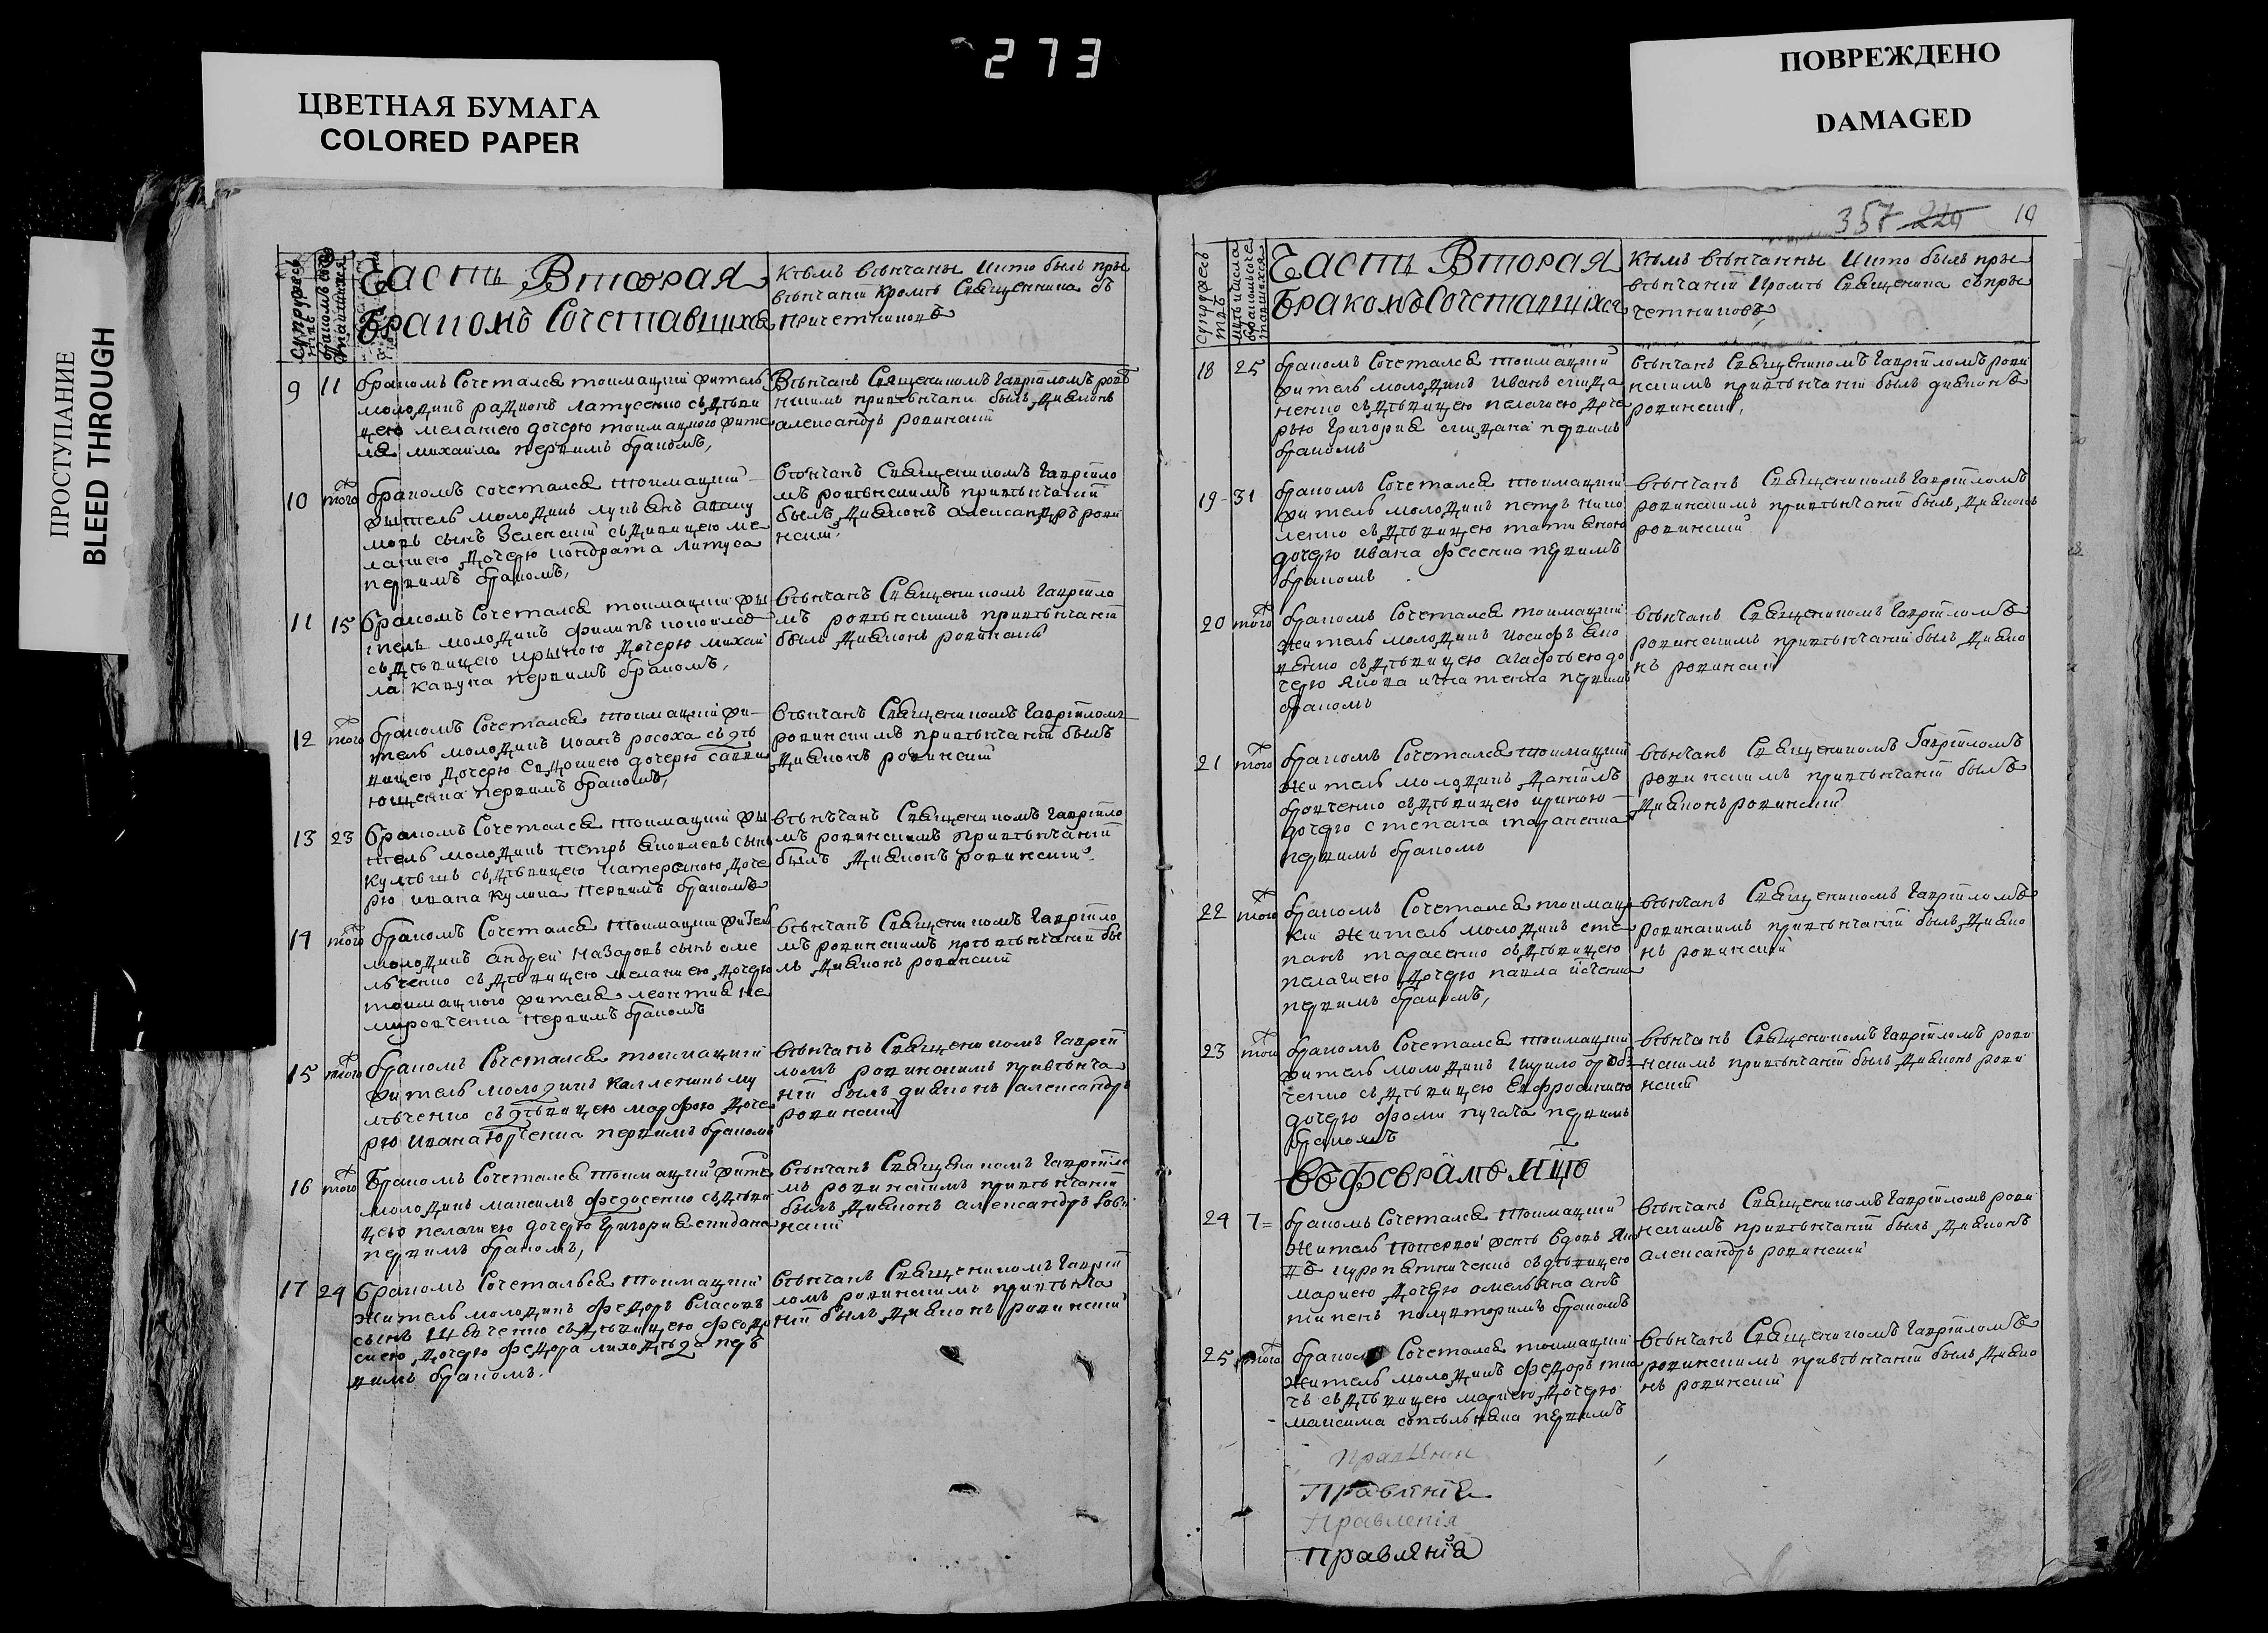 273
ЦВЕТНАЯ БУМАГА
COLORED PAPER
ПОВРЕЖДЕНО
DAMAGED
ПРОСТУПАНИЕ
BLEED THROUGH
Часть Вторая
Бракомъ Сочетавшихся
Кѣмъ вѣнчаны икто былъ при
вѣнчаніи кромѣ Священника съ
причетниковъ
9 11 бракомъ Сочетался токмацкій житель
молодикъ радионъ
цею меланиею дочерю токмацкого жите
ля михаила первимъ бракомъ,
Вѣнчанъ Священикомъ Гавріиломъ ров
нскимъ привѣнчани былъ диаконъ
александръ ровинскій
10 того бракомъ сочетался токмацкій
молодикъ лукъянъ
сынъ Зеленскій съдивицею ме
ланиею дочерю кондрата литуса
первимъ бракомъ,
вѣнчанъ Священикомъ Гавріило
мъ ровѣнскимъ привѣнчаніи
былъ диаконъ александръ рови
нскій
11 15 бракомъ Сочетался токмацкій жы
тель молодикъ филипъ
сьдѣвицею ирыною дочерю михаи
ла кавуна первимъ бракомъ,
вѣнчанъ Священикомъ Гавріило
мъ ровѣнскимъ привѣнчаніи
было диаконъ
12 того бракомъ Сочетался токмацкій жи
тель молодикъ иоанъ росоха съдѣ
вицею дочерю Евдокиею дочерю савки
ющенка первимъ бракомъ,
вѣнчанъ Священикомъ Гавріиломъ
ровинскимъ привѣнчаніи былъ
диаконъ ровинскій
13 23 бракомъ Сочетался токмацкій жы
тель молодикъ петръ яковлевъ сынъ
съдѣвицею катериною доче
рю ивана кулика первимъ бракомъ
вѣнчанъ Священикомъ Гавріило
мъ ровинскимъ привѣнчаніи
былъ диаконъ ровинскій
14 того бракомъ Сочетался токмацкій житель
молодикъ андреи Назаровъ сынъ оме
льченко съдѣвицею меланиею дочерю
токмацкого жителя леонтия не
мировченка первимъ бракомъ
вѣнчанъ Священикомъ Гавріило
мъ ровинскимъ привѣнчаніи бы
лъ диаконъ ровинскій
15 того бракомъ Сочетался токмацкій
житель молодикъ
съдѣвицею марфою доче
рю ивана юрченка первимъ бракомъ
вѣнчанъ Священикомъ Гавріи
ломъ ровинскимъ привѣнча
ніи былъ диаконъ александръ
ровинскій
16 того Бракомъ Сочетался токмацкій жите
молодикъ максимъ федосенко съдѣви
цею пелагиею дочерю григория спидана
первимъ бракомъ,
вѣнчанъ Священикомъ Гавріило
мъ ровинскимъ привѣнчаніи
былъ диаконъ александръ рови
нскій
17 24 бракомъ Сочеталься токмацкій
житель молодикъ федоръ власовъ
сынъ съдѣвицею феодо
сиею дочерю федора лиходѣда пер
вимъ бракомъ.
вѣнчанъ Священикомъ Гавріи
ломъ ровинскимъ привѣнча
ніи былъ диаконъ ровинскій
357 229 19
Часть Вторая
Бракомъ Сочетавщихся
Кѣмъ вѣнчанны икто былъ при
вѣнчаніи кромѣ Священика съпри
четниковъ,
18 25 бракомъ Сочетался токмацкій
житель молодикъ иванъ спида
ненко съдѣвицею пелагиею доче
рью григория спидана первимъ
бракомъ
вѣнчанъ Священикомъ Гавріиломъ рови
нскимъ привѣнчаніи былъ диаконъ
ровинскій,
19 31 бракомъ Сочетался токмацкій
житель молодикъ петръ нико
ленко съдѣвицею татияною
дочерю ивана фесенка первимъ
бракомъ
вѣнчанъ Священикомъ Гавріиломъ
ровинскимъ привѣнчаніи былъ диаконъ
ровинскій
20 того бракомъ Сочетался токмацкій
житель молодикъ иосифъ яко
венко съдѣвицею агафѣею до
черю якова игнатенка первимъ
бракомъ
вѣнчанъ Священикомъ Гавріиломъ
ровинскимъ привѣнчаніи былъ диако
нъ ровинскій
21 того бракомъ Сочетался токмацкій
житель молодикъ даніилъ
бровченко съдѣвицею ириною
дочерю степана тараненка
первимъ бракомъ
вѣнчанъ Священикомъ Гавріиломъ
ровинскимъ привѣнчаніи былъ
диаконъ ровинскій
22 того бракомъ Сочетался токмац
кій житель молодикъ сте
панъ тарасенко съдѣвицею
пелагиею дочерю павла
первимъ бракомъ,
вѣнчанъ Священикомъ Гавріиломъ
ровинскимъ привѣнчаніи былъ диако
нъ ровинскій
23 того бракомъ Сочетался токмацкій
житель молодикъ кирило
ченко съдѣвицею Евфросиниею
дочерю фоми пугача первимъ
бракомъ
вѣнчанъ Священикомъ Гавріиломъ рови
нскимъ привѣнчаніи былъ диаконъ рови
нскій
въ февралѣ мцѣ
24 7 бракомъ Сочетался токмацкій
житель попервой женѣ вдовъ яко
въ куропятниченко съдѣвицею
мариею дочерю омельяна
полувторимъ бракомъ
вѣнчанъ Священикомъ Гавріиломъ рови
нскимъ привѣнчаніи былъ диаконъ
александръ ровинскій
25 того бракомъ Сочетался токмацкій
житель молодикъ федоръ тка
чъ съдѣвицею мариею дочерю
максима первимъ
вѣнчанъ Священикомъ Гавріиломъ
ровинскимъ привѣнчаніи былъ диако
нъ ровинскій
Правлиніе
Правленія
правляніа